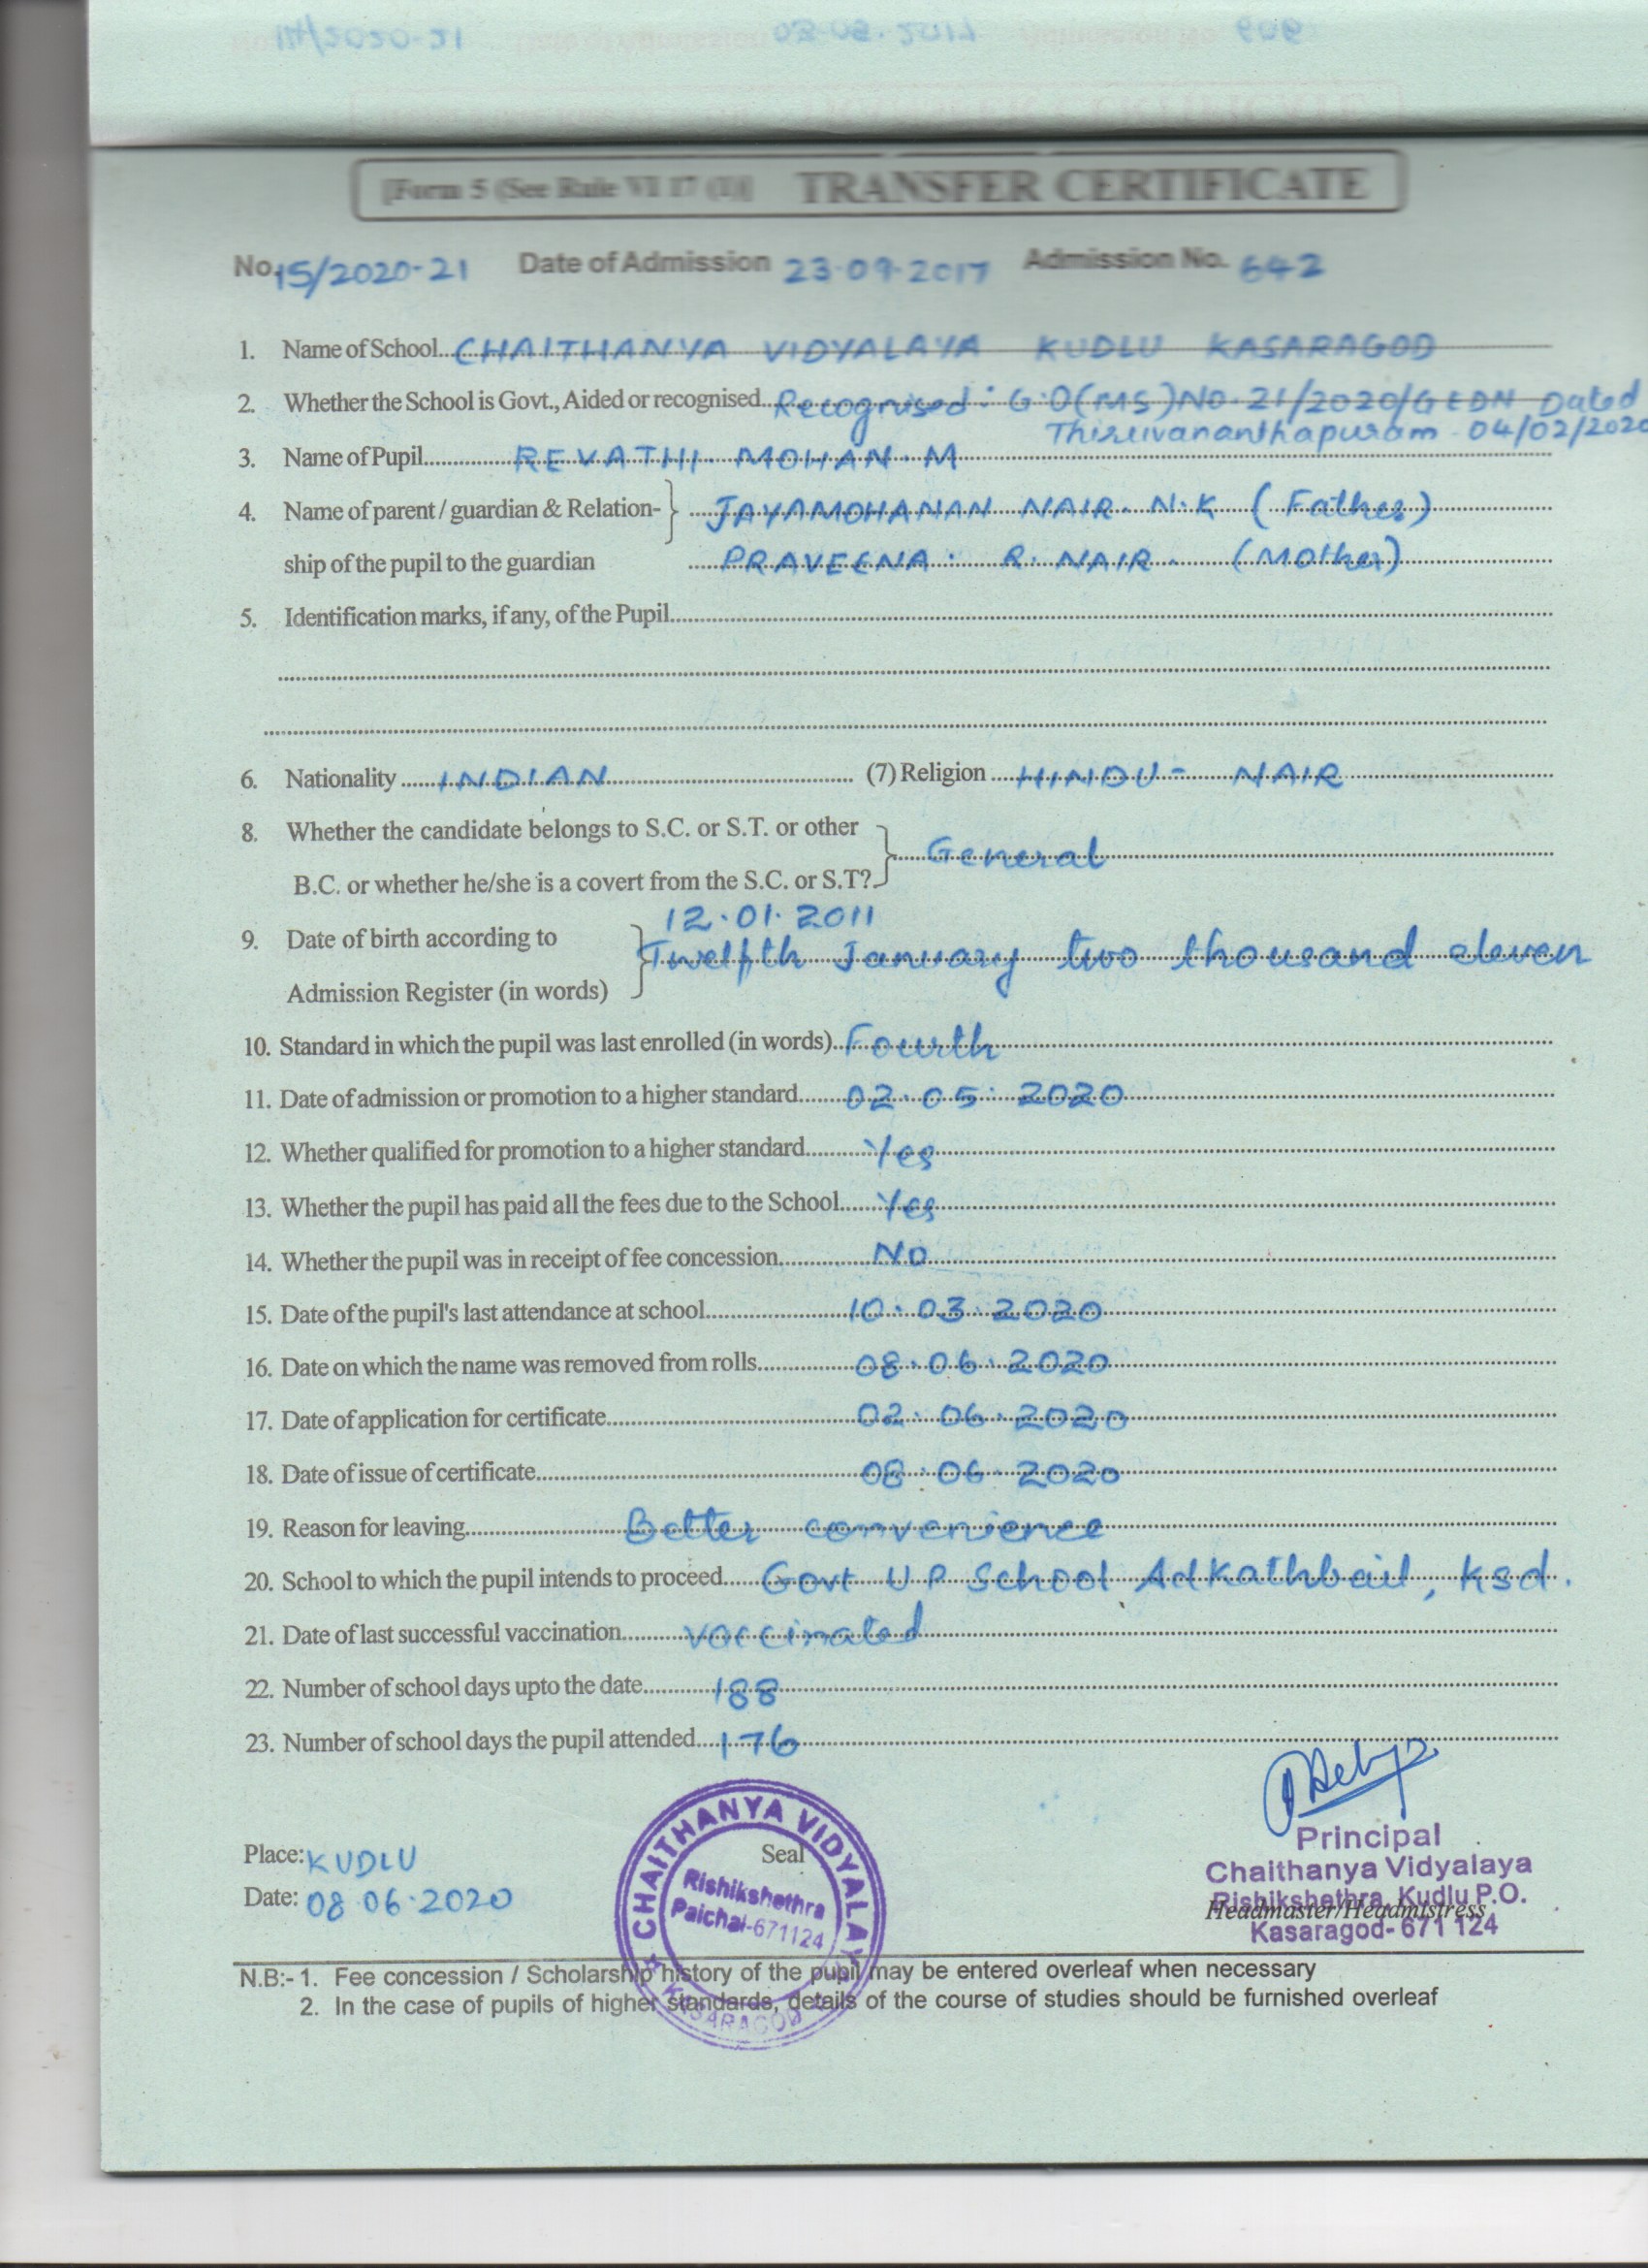 [Form 5 (See Rule VI 17 (1)] TRANSFER CERTIFICATE
No. 15/2020-21 Date of Admission 23-09-2017 Admission No. 642
1. Name of School CHAITHANYA VIDYALAYA KUDLU KASARAGOD
2. Whether the School is Govt., Aided or recognised Recognised: G.O(MS)NO.21/2020/GEDN Dated
Thiruvananthapuram 04/02/2020
3. Name of Pupil REVATHI. MOHAN. M
4. Name of parent / guardian & Relation- JAYAMOHANAN NAIR. N.K (Father)
ship of the pupil to the guardian PRAVEENA. R. NAIR. (Mother)
5. Identification marks, if any, of the Pupil
6. Nationality INDIAN (7) Religion HINDU- NAIR
8. Whether the candidate belongs to S.C. or S.T. or other
General
B.C. or whether he/she is a covert from the S.C. or S.T?
12.01.2011
9. Date of birth according to Twelfth January two thousand eleven
Admission Register (in words)
10. Standard in which the pupil was last enrolled (in words) Fourth
11. Date of admission or promotion to a higher standard 02.05.2020
12. Whether qualified for promotion to a higher standard Yes
13. Whether the pupil has paid all the fees due to the School Yes
14. Whether the pupil was in receipt of fee concession No
15. Date of the pupil's last attendance at school 10.03.2020
16. Date on which the name was removed from rolls 08.06.2020
17. Date of application for certificate 02.06.2020
18. Date of issue of certificate 08.06.2020
19. Reason for leaving Better convenience
20. School to which the pupil intends to proceed Govt U P School Adkathbail, Ksd.
21. Date of last successful vaccination vaccinated
22. Number of school days upto the date 188
23. Number of school days the pupil attended 176
Place: KUDLU
Date: 08.06.2020
Seal
CHAITHANYA VIDYALAYA
Rishikshethra
Paichal-671124
KASARAGOD
Principal
Chaithanya Vidyalaya
Rishikshethra, Kudlu P.O.
Headmaster/Headmistress
Kasaragod- 671 124
N.B:- 1. Fee concession / Scholarship history of the pupil may be entered overleaf when necessary
2. In the case of pupils of higher standards, details of the course of studies should be furnished overleaf